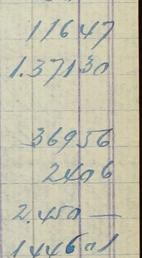 11647
1.37130
36956
2406
2.450 —